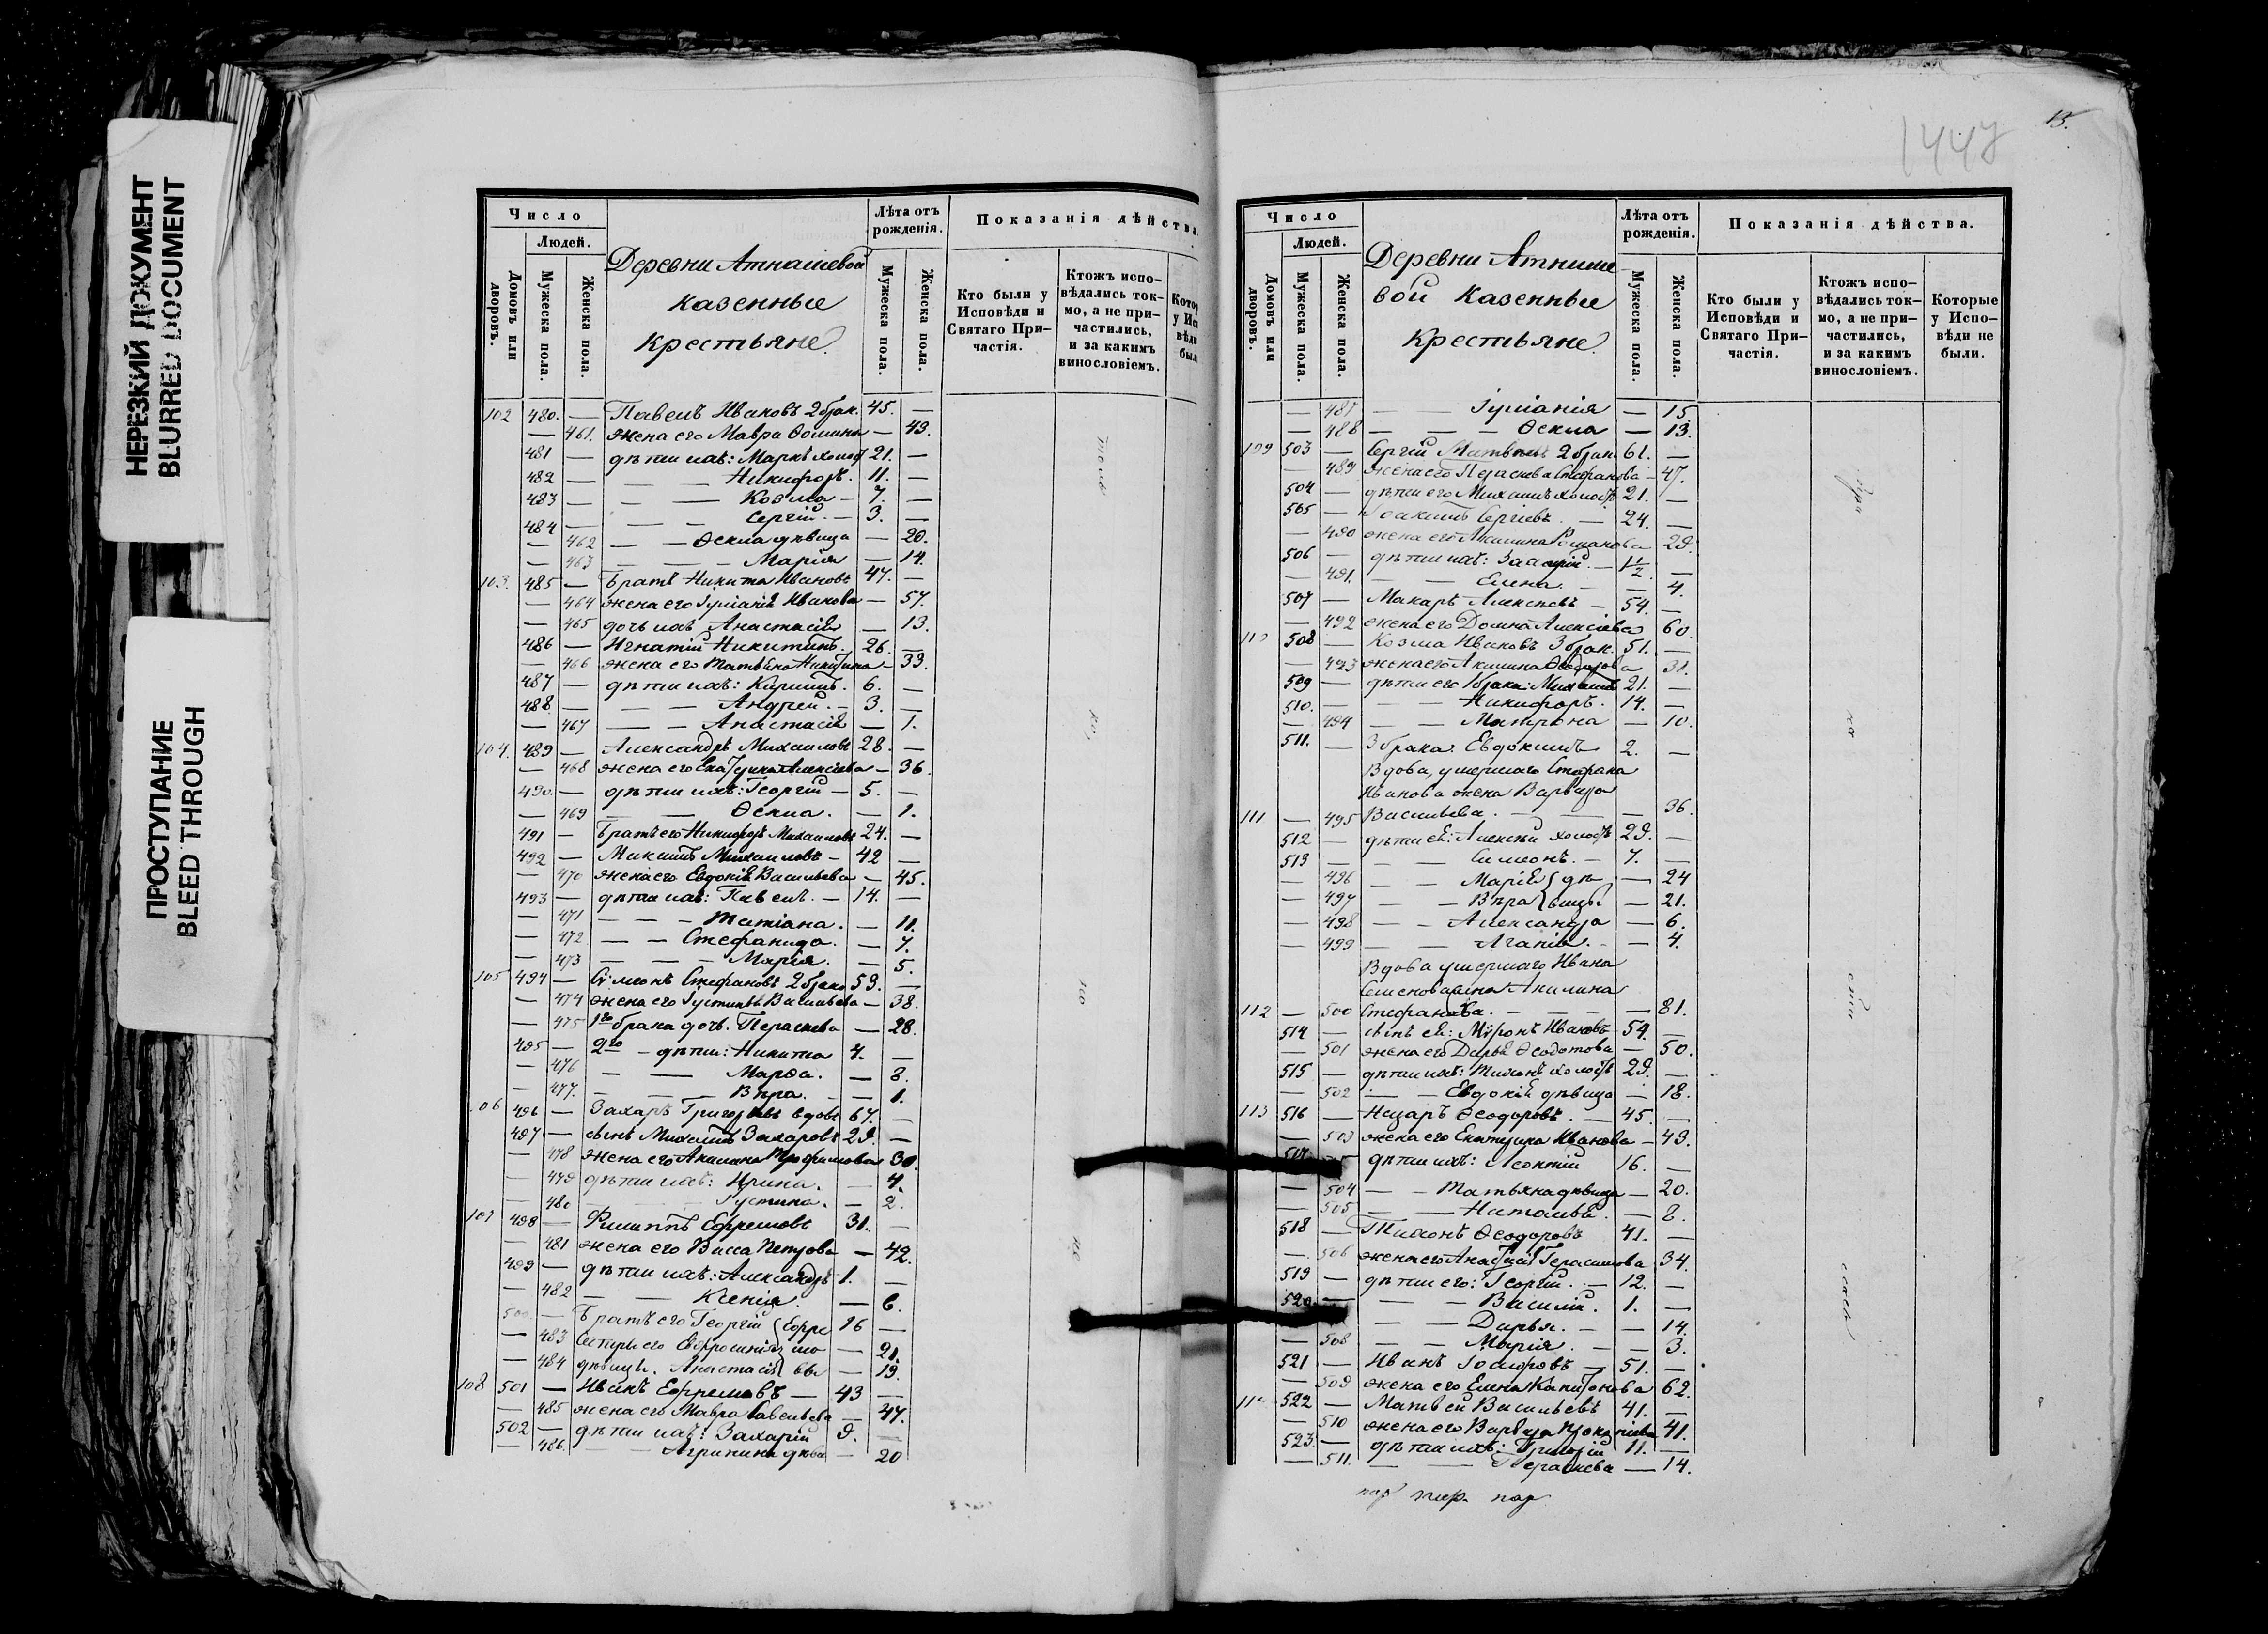 НЕРЕЗКИЙ ДОКУМЕНТ
BLURRED DOCUMENT
ПРОСТУПАНИЕ
BLEED THROUGH
Число
Людей.
Домовъ или дворовъ.
Мужеска пола.
Женска пола.
Деревни Атнашевой
казенные
крестьяне.
Лѣта отъ рожденія.
Мужеска пола.
Женска пола.
Показанія дѣйства.
Кто были у Исповѣди и Святаго Причастія.
Ктожъ исповѣдались токмо, а не причастились, и за какимъ винословіемъ.
102 480. — Павелъ Ивановъ 2 брак. 45. —
— 461. жена его Мавра Ѳомина — 43.
481 — дѣти ихъ: Маркъ холос 21. —
482 — — — Никифоръ. 11. —
483 — — — Козма — 7. —
484 — — — Сергій. — 3. —
— 462 — — Ѳекла дѣвица — 20.
— 463 — — — Марія — 14.
103. 485 — Братъ Никита Ивановъ 47. —
— 464 жена его Іуліанія Иванова — 57.
— 465 дочь ихъ Анастасія — 13.
486 — Игнатій Никитинъ. 26. —
— 466 жена его Татьяна Никитина — 33.
487 — дѣти ихъ: Кириллъ. 6. —
488 — — — Андрей. — 3. —
— 467 — — Анастасія — 1.
104. 489 — Александръ Михаиловъ 28. —
— 468 жена его Екатерина Алексіева — 36.
490. — дѣти ихъ: Георгій — 5. —
— 469 — — Ѳекла. — 1.
491 — Братъ его Никифоръ Михаиловъ 24. —
492 — Макаръ Михаиловъ — 42 —
— 470 жена его Евдокія Васильева — 45.
493 — дѣти ихъ: Павелъ. — 14. —
— 471 — — — Татіана. — 11.
— 472 — — Стефанида. — 7.
— 473 — — — Марія. — 5.
105 494 — Сѵмеонъ Стефановъ 2 брака 53. —
— 474 жена его Іустина Васильева — 38.
— 475 1го брака дочь. Параскева — 28.
495 — 2го — дѣти: Никита 4. —
— 476 — — Марѳа. — 8.
— 477. — — Вѣра. — 1.
06 496 — Захаръ Григорьевъ вдовъ 67. —
497 — сынъ Михаилъ Захаровъ 29. —
— 478 жена его Акилина Трофимова 30.
— 479 дѣти ихъ: Ирина. — 4.
— 480 — Іустина. — 2.
107 498 — Филиппъ Ефремовъ 31. —
— 481 жена его Васса Петрова — 42.
499 — дѣти ихъ: Александръ 1. —
— 482 — — Ксенія. — 6.
500. — Братъ его Георгій Ефре 16 —
— 483 Сестры его Евфросинія мо — 21.
— 484 дѣвицы. Анастасія вы — 19.
108 501 — Иванъ Ефремовъ — 43 —
— 485 жена его Мавра Савельева — 47.
502 — дѣти ихъ: Захарій 9. —
— 486. — Агрипина дѣви — 20
1447
15.
Число
Людей.
Домовъ или дворовъ.
Мужеска пола.
Женска пола.
Деревни Атнаше
вой казенные
крестьяне.
Лѣта отъ рожденія.
Мужеска пола.
Женска пола.
Показанія дѣйства.
Кто были у Исповѣди и Святаго Причастія.
Ктожъ исповѣдались токмо, а не причастились, и за какимъ винословіемъ.
Которые у Исповѣди не были.
— 487 — — Іуліанія — 15.
— 488 — — — Ѳекла — 13.
109 503 — Сергій Матвѣевъ 2 брак. 61. —
— 489 жена его Параскева Стефанова — 47.
504 — дѣти его Михаилъ холостъ 21. —
505 — Іоакимъ Сергіевъ. — 24. —
— 490 жена его Акилина Романова 29.
506 — дѣти ихъ: — 1 1/2 —
— 491. — — Елена. — — 4.
507 — Макаръ Алексѣевъ — 54. —
— 492 жена его Домна Алексіева 60.
110 508 — Козма Ивановъ 3 брак. 51. —
— 493 жена его Акилина Ѳеодорова 31.
509 — дѣти его 1 брака: Михаилъ 21. —
510. — — — Никифоръ. 14. —
— 494 — — Матрона — 10.
511. — 3 брака. Евдокимъ 2. —
Вдова, умершаго Стефана
Иванова жена Варвара
111 — 495 Васильева. — — — 36.
512 — дѣти ея: Алексѣй холостъ 29. —
513 — — — Симеонъ. — 7. —
— 496 — — Марія дѣ — 24
— 497 — — Вѣра вицы — 21.
— 498 — — Александра — 6.
— 499 — — Агапія. — — 4.
Вдова умершаго Ивана
Семенова жена Акилина
112 — 500 Стефанова. — — — — 81.
514 — сынъ ея: Мѵронъ Ивановъ 54. —
— 501 жена его Дарья Ѳеодотова — 50.
515 — дѣти ихъ: Тихонъ холостъ 29. —
— 502 — — Евдокія дѣвица — 18.
113 516 — Назаръ Ѳеодоровъ. — 45. —
— 503 жена его Екатерина Иванова — 43.
517 — дѣти ихъ: Леонтій 16. —
— 504 — — Татьяна дѣвица — 20.
— 505 — — Наталья. — 8.
518 — Тихонъ Ѳеодоровъ 41. —
— 506 жена его Анастасія Герасимова 34.
519 — дѣти его: Георгій. — 12. —
520 — — — Василій. 1. —
— — Дарья. — — 14.
— 508 — — Марія. — — 3.
521 — Иванъ — 51. —
— 509 жена его Елена Капитонова 62.
114 522 — Матвей Васильевъ 41. —
— 510 жена его Варвара Прокопіева 41.
523. — дѣти ихъ: Григорій 11. —
— 511. — — Параскева — 14.